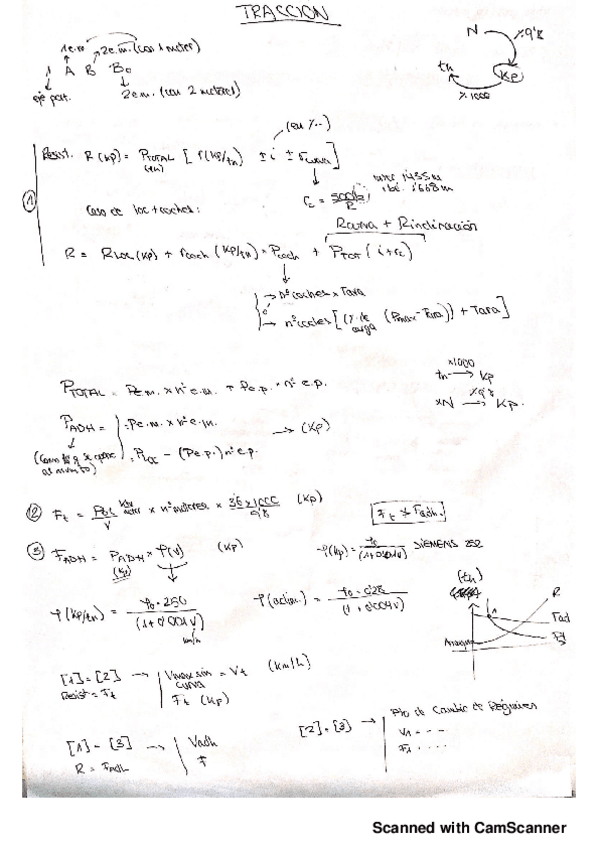 TRACCIÓN
1 e.m
2 e.m. (con 1 motor)
1 A B Bo
eje port.
2 e.m. (con 2 motores)
N ÷9'8
tn Kp
÷1000
(en ‰)
① Resist. R (kp) = PTOTAL (tn) [ r (kp/tn) ± i ± rcurva ]
1435 m
1668 m
rc = 500b / R
Caso de loc + coches:
Rcurva + Rinclinación
R = RLOC (Kp) + rcoach (Kp/tn) · Pcoach + Ptot ( i + rc )
→ nº coches × Tara
ó
→ nº coches [ (% de carga (Pmax - Tara)) + Tara ]
PTOTAL = Pe.m. × nº e.m. + Pe.p. · nº e.p.
×1000
tn → Kp
N → Kp.
PADH = Pe.m. × nº e.m. → (Kp)
PLOC - (Pe.p.) nº e.p.
② Ft = Pot / V × nº motores × 3'6 × 1000 / 9'8 (Kp)
Ft ≯ Fadh.
③ FADH = PADH × φ(v) (Kp)
SIEMENS 252
φ (kp/tn) = φ0 · 250 / (1 + 0'001 V)
km/h
φ (adim.) =
(tn)
R
Fad
Ft
[1] = [2] → Vmax sin curva = Vt (km/h)
Resist = Ft
Ft (Kp)
[2] = [3] → Pto de Cambio de Regímenes
V1 = - - -
F1 . . . .
[1] - [3] → Vadh
R = Fadh
F
Scanned with CamScanner